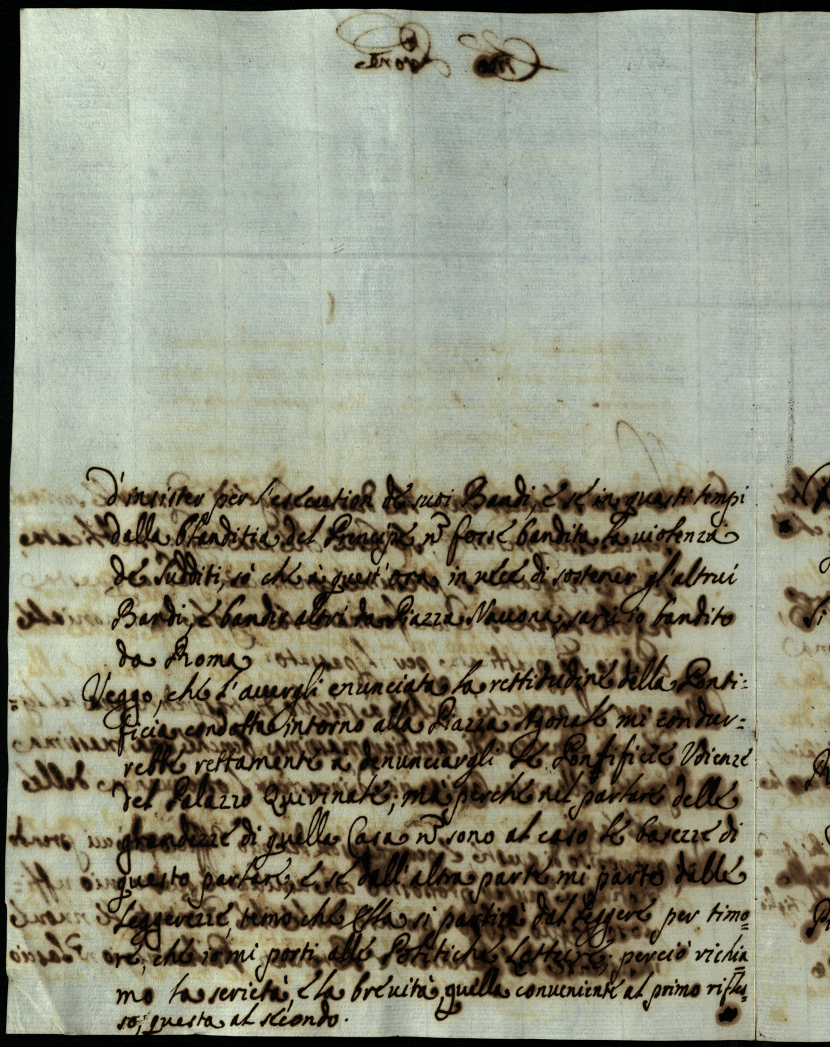 d'insister per l'esecution de suoi Bandi, e se in questi tempi
dalla blanditia del Principe nō fosse bandita la violenza
de sudditi, sò che à quest'ora in vece di sostener gl'altrui
Bandi, e bandir altri da Piazza Nauona, sarei io bandito
da Roma.
Veggo, che l'auergli enunciata la rettitudine della Ponti=
ficia condotta intorno alla Piazza Agonale mi condur=
rebbe rettamente a denunciargli le Pontificie Udienze
del Palazzo Quirinale; mà perche nel parlare delle
grandezze di quella Casa nō sono al caso le bassezze di
questo parlare, e se dall'altra parte mi parto dalle
leggerezze, temo che Ella si partirà dal leggere per timo=
re, che io mi porti alle Politiche letture; perciò richia
mo la serietà, e la breuità, quella conueniente al primo rifles=
so, questa al secondo.